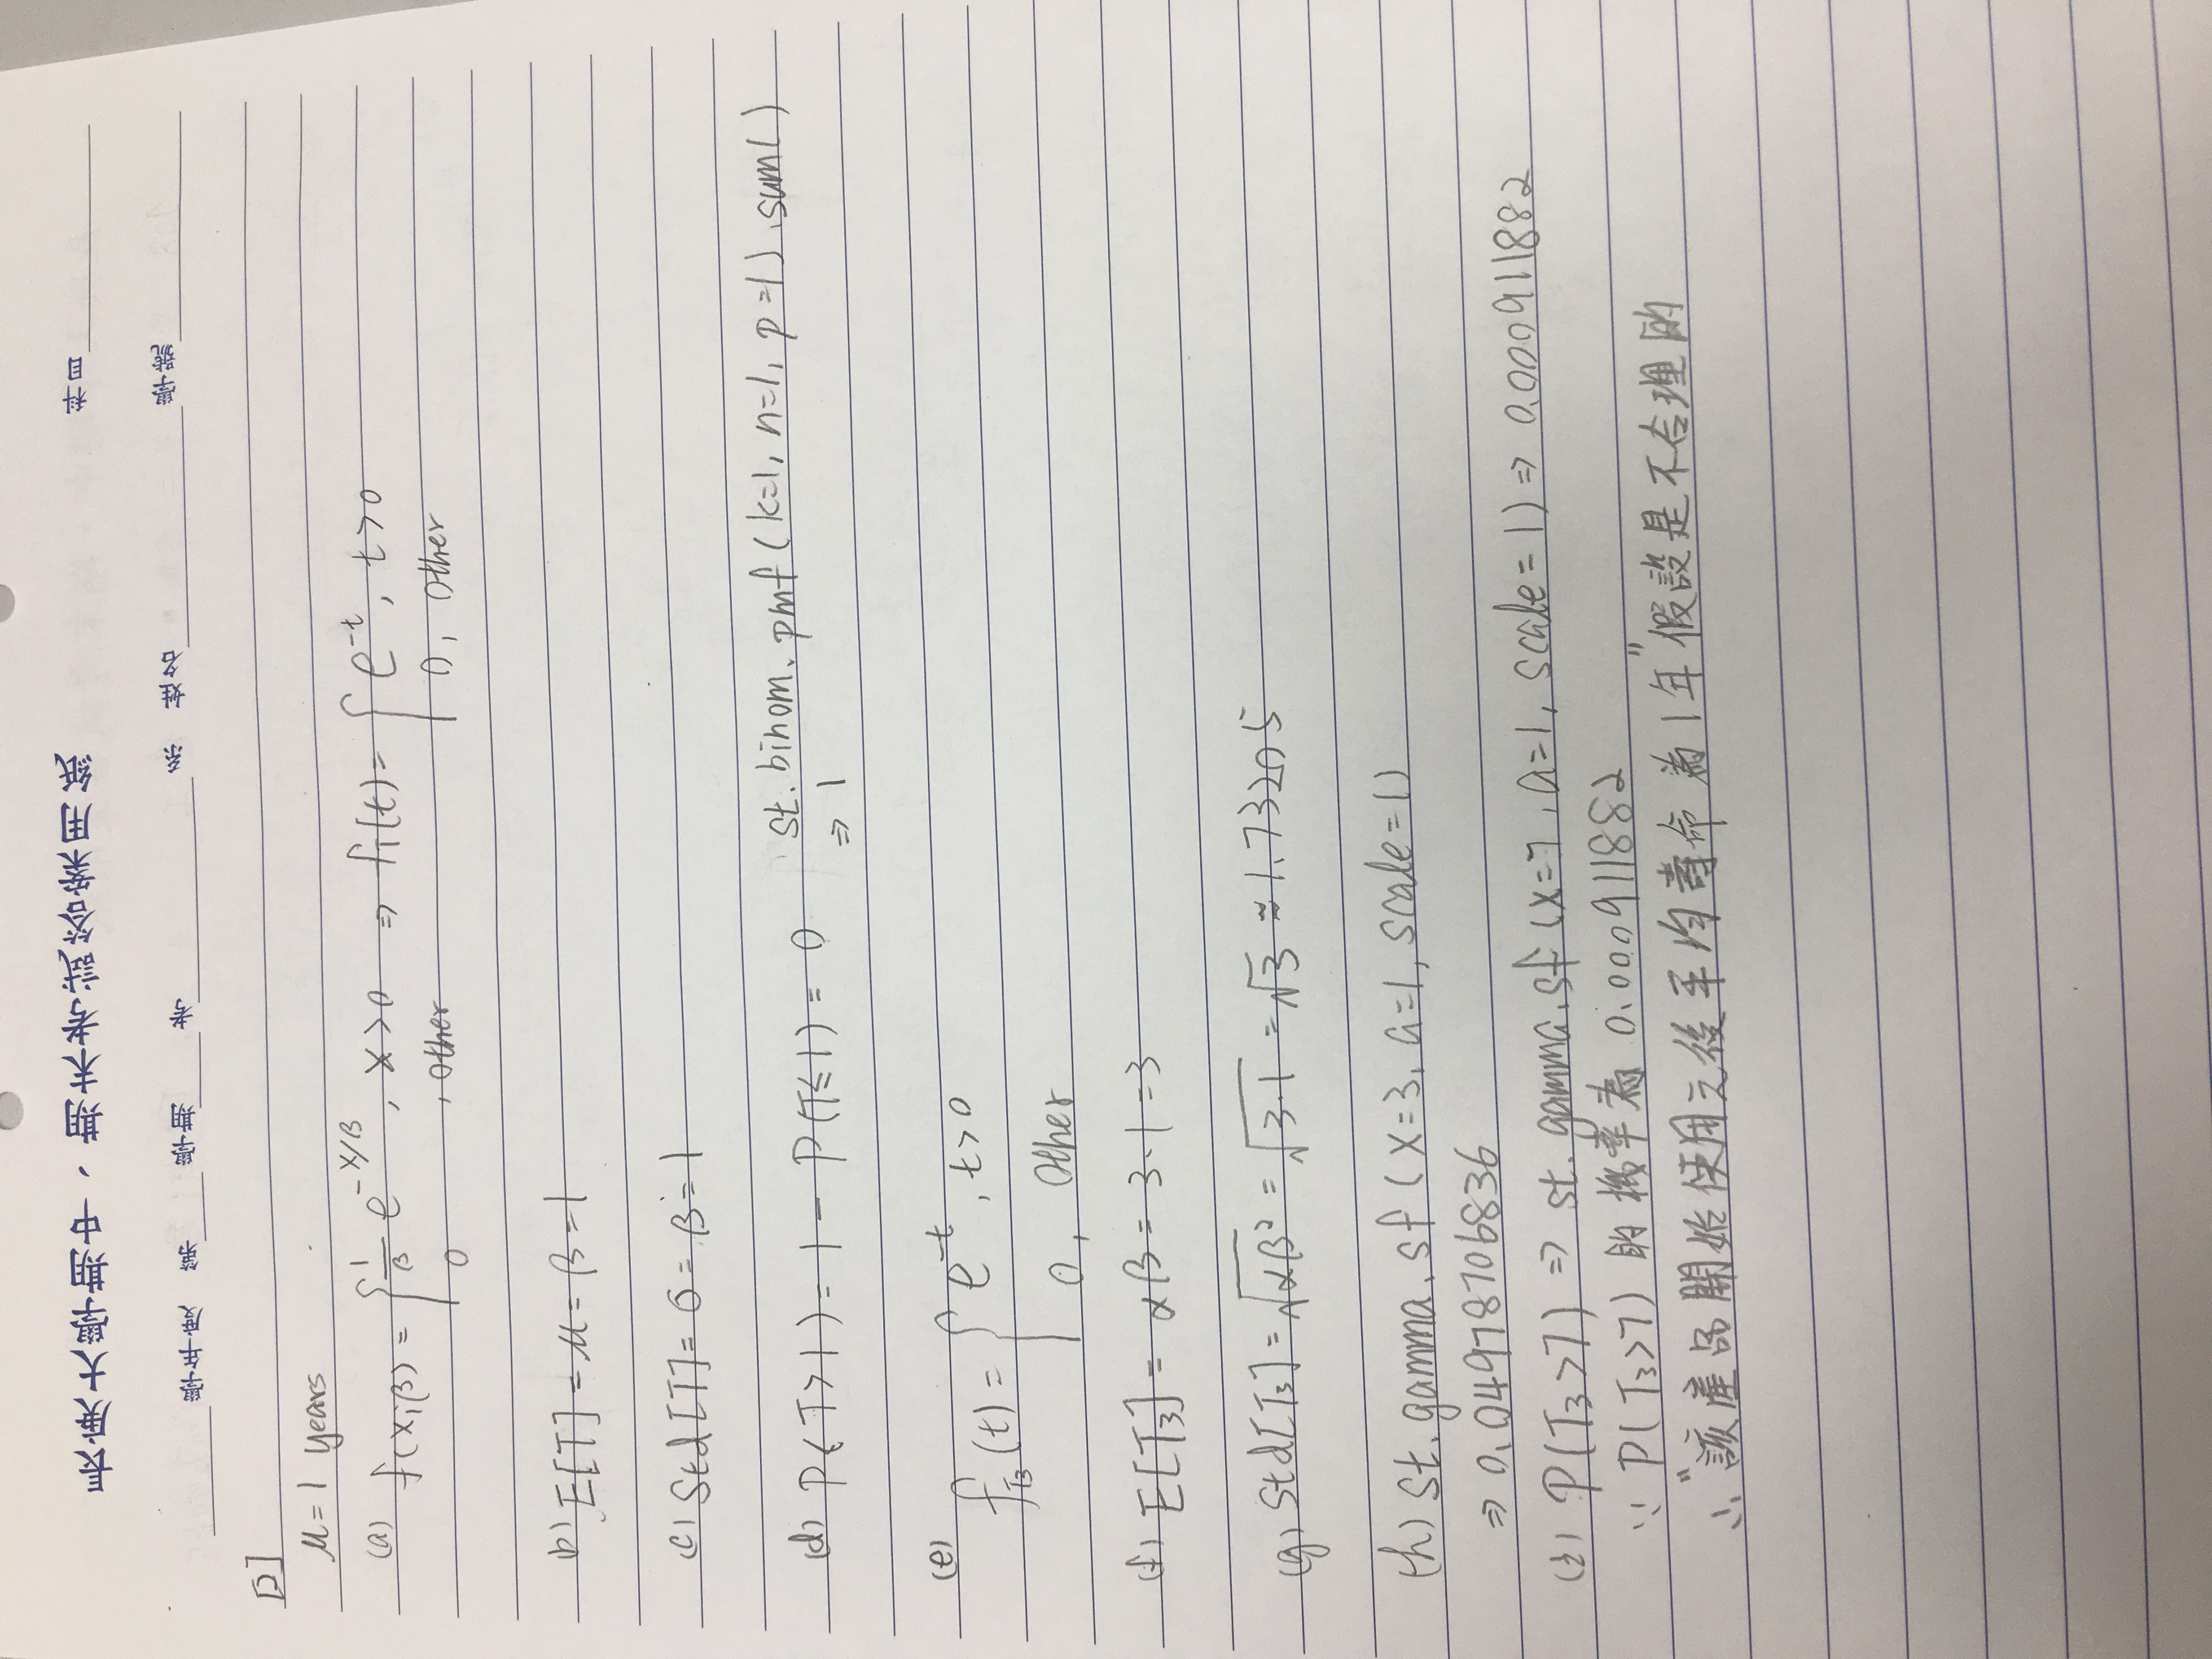 長庚大學期中、期末考試答案用紙 科目
學年度 第 學期 考 系 姓名 學號
[2]
μ = 1 years
(a) f(x;β) = { 1/β e^{-x/β}, x>0 ⇒ f_T(t) = { e^{-t}, t>0
0, other 0, other
(b) E[T] = μ = β = 1
(c) Std[T] = σ = β = 1
(d) P(T>1) = 1 - P(T≤1) = 0 st.binom.pmf(k=1, n=1, p=1).sum()
⇒ 1
(e)
f_{T3}(t) = { e^{-t}, t>0
0, other
(f) E[T3] = αβ = 3·1 = 3
(g) Std[T3] = √αβ² = √3·1 = √3 ≈ 1.73205
(h) st.gamma.sf(x=3, a=1, scale=1)
⇒ 0.04978706836
(i) P(T3>7) ⇒ st.gamma.sf(x=7, a=1, scale=1) ⇒ 0.000911882
∵ P(T3>7) 的機率為 0.000911882
∴ "該產品開始使用之後平均壽命為1年" 假設是不合理的